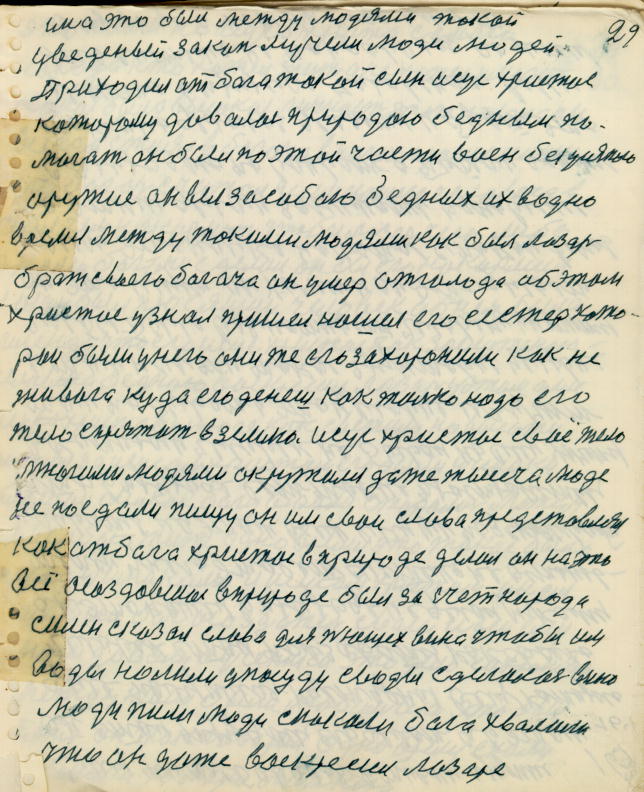 29
има это были между людями такой
уведеный закон мучили люди людей
Приходил от бога такой сын исус христос
которому довалос природаю бедным по-
могат он был по этой части воен без
оружие он вел за собою бедных их водно
время между такими людями как был лазар
брат своего богача он умер отголода обэтом
христос узнал пришел нашел его сестер кото-
рои были унего они же его захоронили как не
живога куда его денеш как толко надо его
тело спрятат в землю. исус христос своё тело
многими людями окружал даже тысеча люде
не поедали пищу он им свои слова представлял
как от бога христос в природе делал он на это
всё в природе был за счет народа
силен сказал слова для пющех вина чтобы им
воды налили упосуду своды сделался вино
люди пили люди бога хвалили
что он даже воскресил лазаре